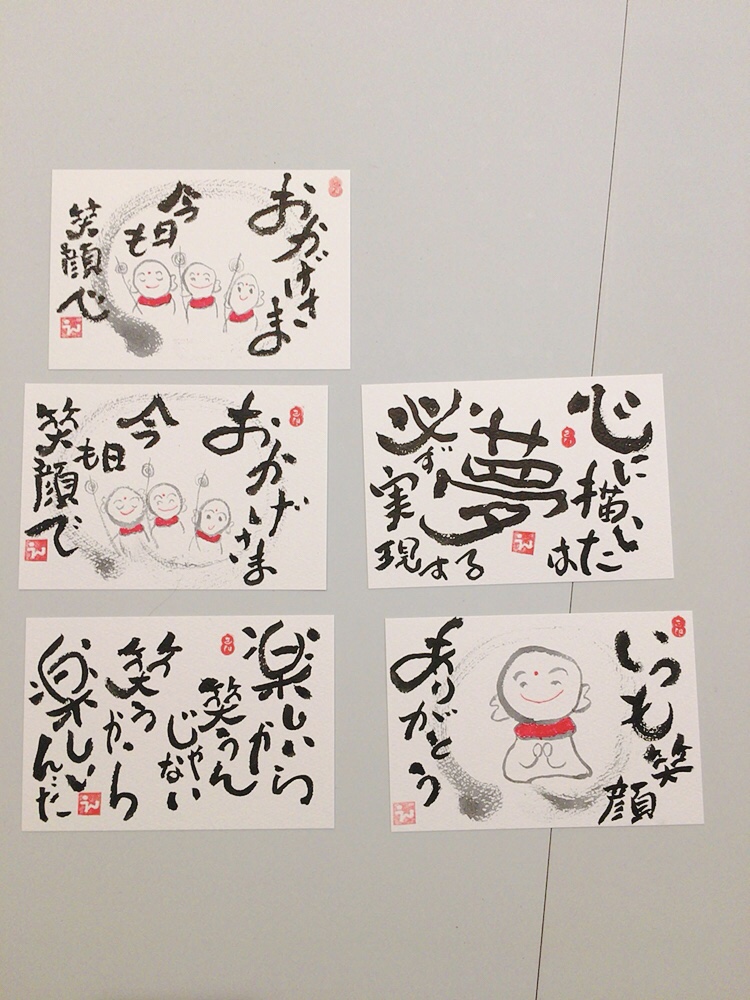 おかげさま
今日も
笑顔で
おかげさま
今日も
笑顔で
心に
描いた
夢は
必ず
実現する
楽しいから
笑うん
じゃない
笑うから
楽しいんだ
いつも笑顔
ありがとう